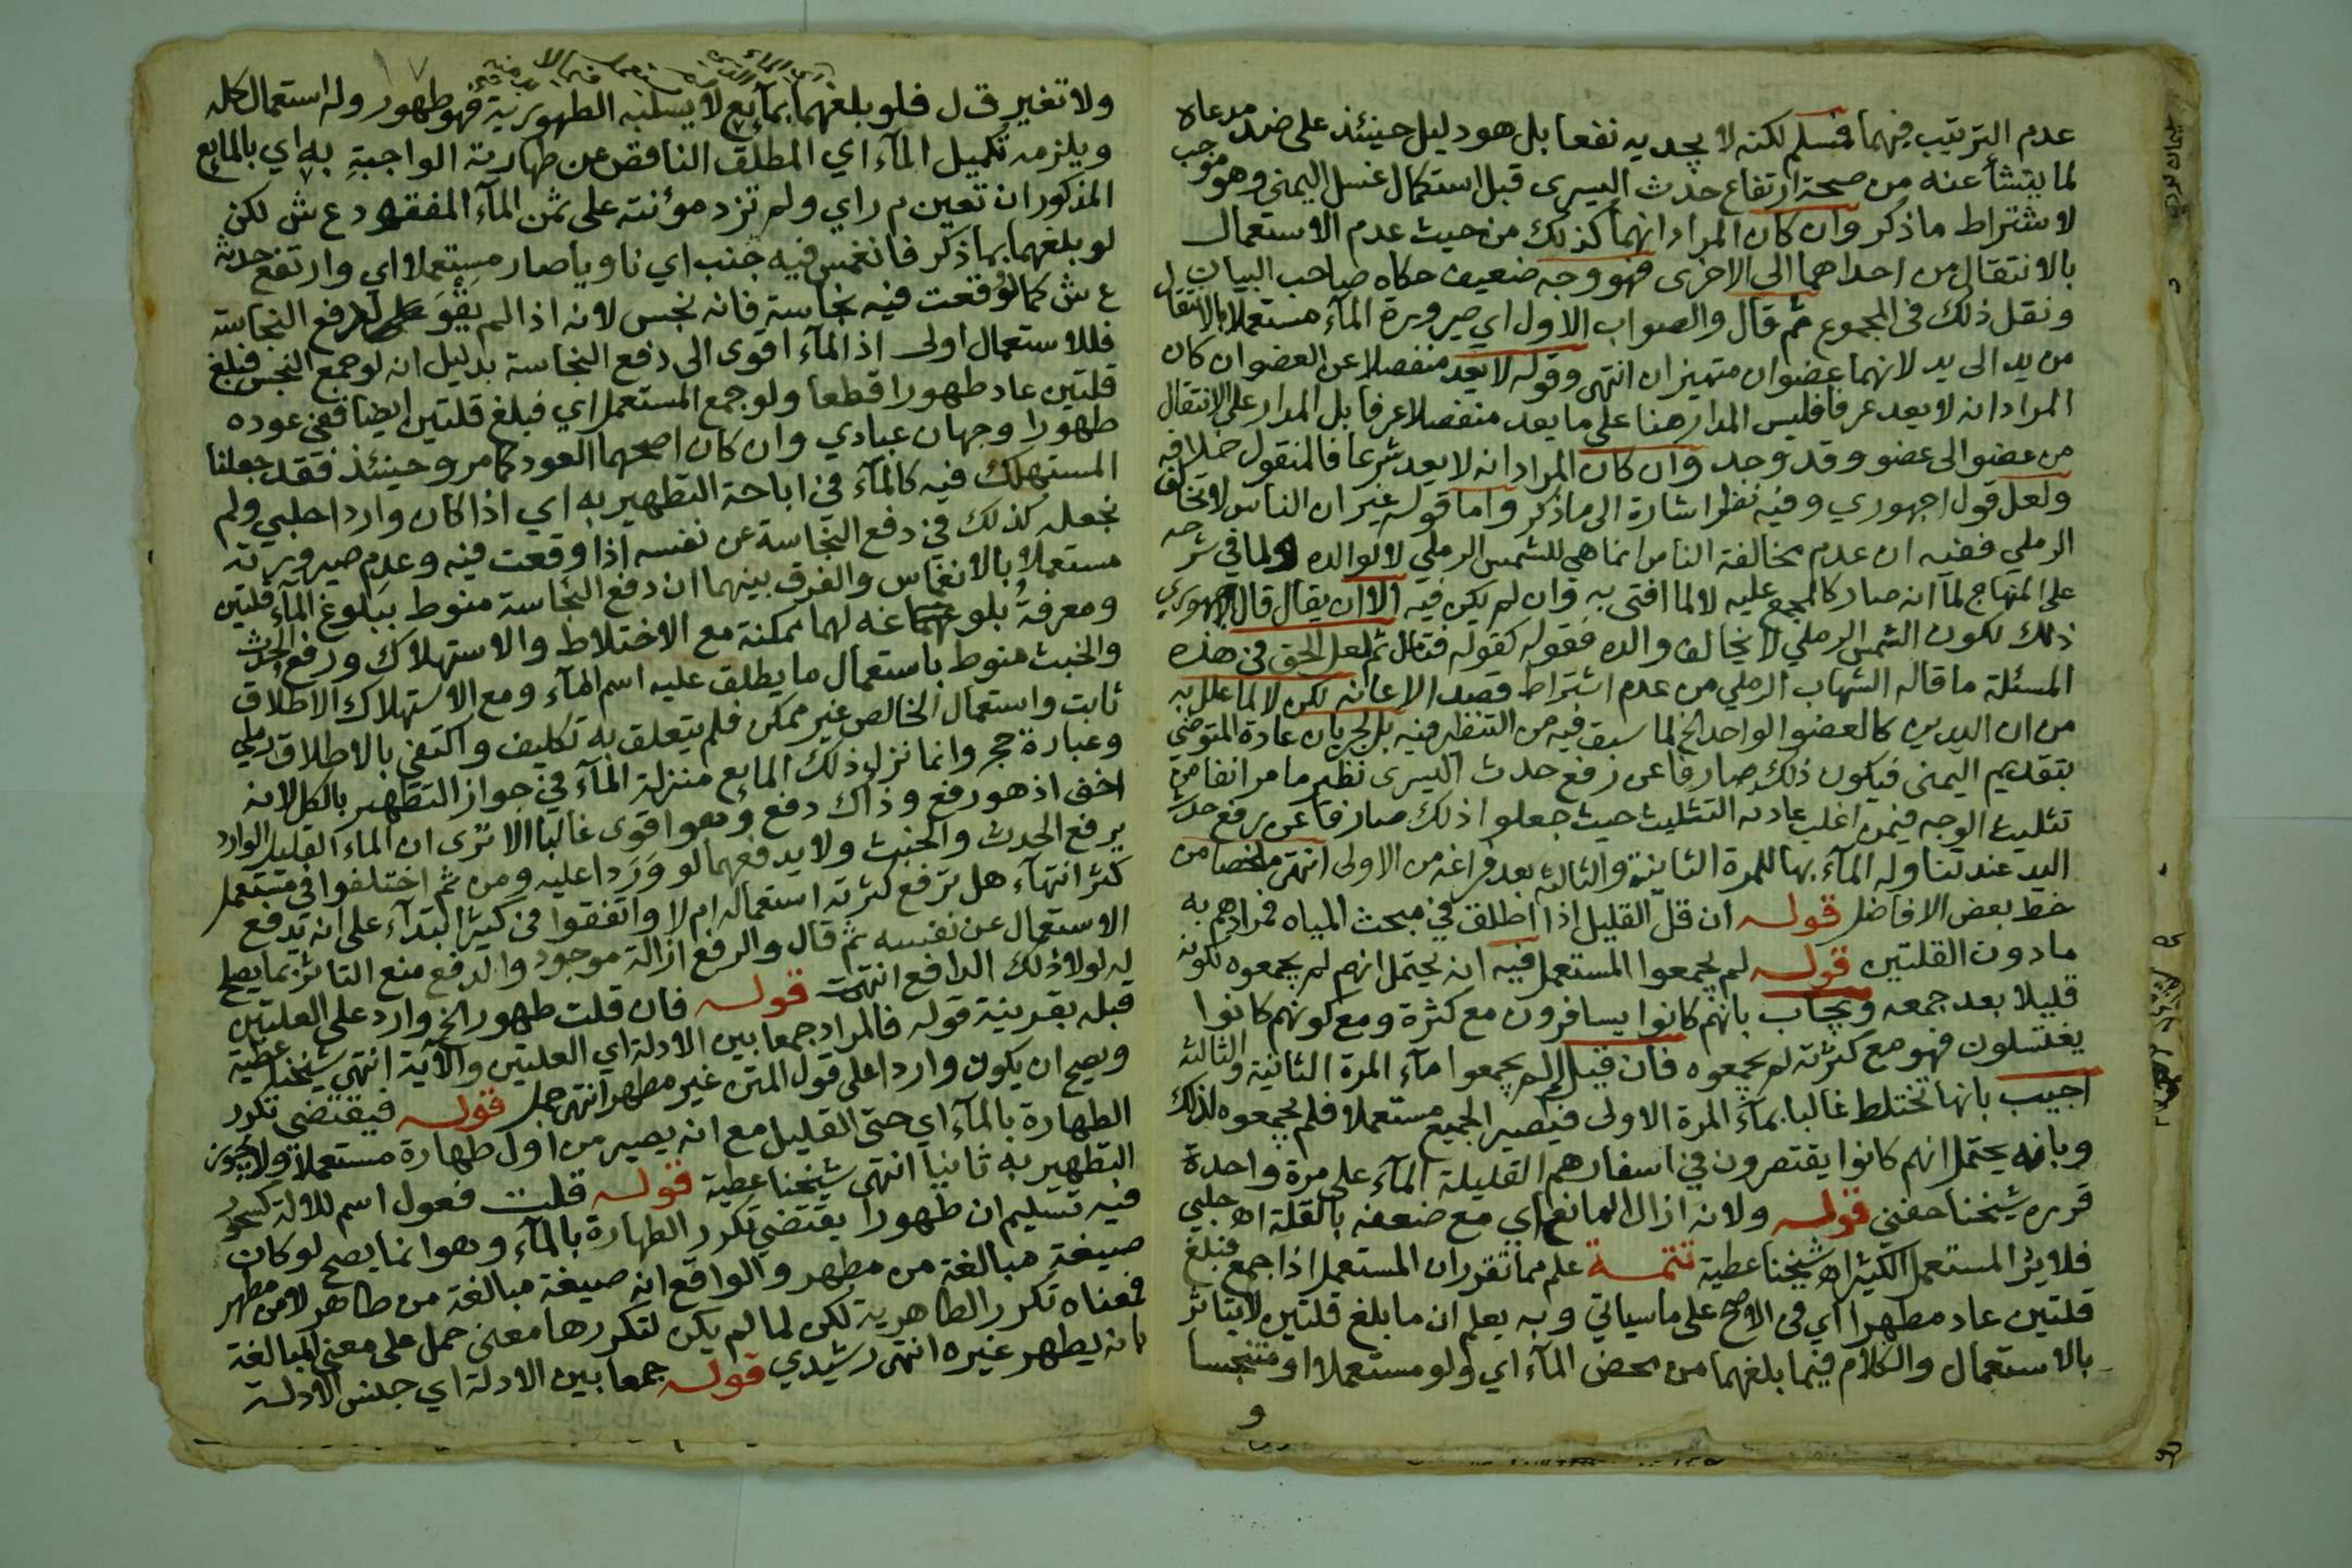 عدم الترتيب فيهما فمسلم لكنه لا يجديه نفعا بل هو دليل حينئذ على ضد مدعاه
لما ينشأ عنه من صحة ارتفاع حدث اليسرى قبل استكمال غسل اليمنى وهو موجب
لاشتراط ما ذكر وان كان المراد انهما كذلك من حيث عدم الاستعمال
بالانتقال من احداهما الى الاخرى فهو وجه ضعيف حكاه صاحب البيان
ونقل ذلك فى المجموع ثم قال والصواب الاول اي صيرورة المآء مستعملا بالانتقال
من يد الى يد لانهما عضوان متميزان انتهى وقوله لا يعد منفصلا عن العضو ان كان
المراد انه لا يعد عرفا فليس المدار هنا على ما يعد منفصلا عرفا بل المدار على الانتقال
من عضو الى عضو وقد وجد وان كان المراد انه لا يعد شرعا فالمنقول خلافه
ولعل قول اجهوري وفيه نظر اشارة الى ما ذكر واما قوله غير ان الناس لا تخالف
الرملي ففيه ان عدم مخالفة الناس انما هي للشمس الرملي لا لوالده ولما في شرحه
على المنهاج لما انه صار كالمجمع عليه لا لما افتى به وان لم يكن فيه الا ان يقال قال الاجهوري
ذلك لكون الشمس الرملي لا يخالف والده فقوله كقوله فتامل ثم لعل الحق في هذه
المسئلة ما قاله الشهاب الرملي من عدم اشتراط قصد الاعانه لكن لا لما علل به
من ان اليدين كالعضو الواحد الخ لما سبق فيه من التنظير فيه بل لجريان عادة المتوضي
بتقديم اليمنى فيكون ذلك صارفا عن رفع حدث اليسرى نظير ما مر انفا من
تثليث الوجه فيمن اغلب عادته التثليث حيث جعلوا ذلك صارفا عن رفع حدث
اليد عند تناوله المآء بها للمرة الثانية والثالثة بعد فراغه من الاولى انتهى ملخصا من
خط بعض الافاضل قوله ان قل القليل اذا اطلق في مبحث المياه فمرادهم به
ما دون القلتين قوله لم يجمعوا المستعمل فيه انه يحتمل انهم لم يجمعوه لكونه
قليلا بعد جمعه ويجاب بانهم كانوا يسافرون مع كثرة ومع كونهم كانوا
يغتسلون فهو مع كثرته لم يجمعوه فان قيل لم لم يجمعوا مآء المرة الثانية والثالثة
اجيب بانها تختلط غالبا بمآء المرة الاولى فيصير الجميع مستعملا فلم يجمعوه لذلك
وبانه يحتمل انهم كانوا يقتصرون في اسفارهم القليلة المآء على مرة واحدة
قرره شيخنا حفني قوله ولانه ازال المانع اي مع ضعفه بالقلة اه حلبي
فلا يرد المستعمل الكثير اه شيخنا عطية تتمة علم مما تقرر ان المستعمل اذا جمع فبلغ
قلتين عاد مطهرا اي في الاصح على ما سياتي وبه يعلم ان ما بلغ قلتين لا يتاثر
بالاستعمال والكلام فيما بلغهما من محض المآء اي ولو مستعملا او متنجسا
و
ولا تغير ق ل فلو بلغهما بمآيع لا يسلبه الطهورية فهو طهور وله استعمال كله
ويلزمه تكميل المآء اي المطلق الناقص عن طهارته الواجبة به اي بالمايع
المذكور ان تعين م ر اي ولم تزد مؤنته على ثمن المآء المفقود ع ش لكن
لو بلغهما بما ذكر فانغمس فيه جنب اي ناويا صار مستعملا اي وارتفع حدثه
ع ش كما لو وقعت فيه نجاسة فانه نجس لانه اذا لم يقو على دفع النجاسة
فللاستعمال اولى اذ المآء اقوى الى دفع النجاسة بدليل انه لو جمع النجس فبلغ
قلتين عاد طهورا قطعا ولو جمع المستعمل اي فبلغ قلتين ايضا ففي عوده
طهورا وجهان عبادي وان كان اصحهما العود كما مر وحينئذ فقد جعلنا
المستهلك فيه كالمآء في اباحة التطهير به اي اذا كان واردا حلبي ولم
نجعله كذلك في دفع النجاسة عن نفسه اذا وقعت فيه وعدم صيرورته
مستعملا بالانغماس والفرق بينهما ان دفع النجاسة منوط ببلوغ المآء قلتين
ومعرفة بلوغه لهما ممكنة مع الاختلاط والاستهلاك ورفع الحدث
والخبث منوط باستعمال ما يطلق عليه اسم المآء ومع الاستهلاك الاطلاق
ثابت واستعمال الخالص غير ممكن فلم يتعلق به تكليف واكتفي بالاطلاق رملي
وعبارة حجر وانما نزل ذلك المايع منزلة المآء في جواز التطهير بالكل لانه
اخف اذ هو رفع وذاك دفع وهو اقوى غالبا الا ترى ان الماء القليل الوارد
يرفع الحدث والخبث ولا يدفعهما لو وردا عليه ومن ثم اختلفوا في مستعمل
كثر انتهآء هل ترفع كثرته استعماله ام لا واتفقوا في كثير ابتدآء على انه يدفع
الاستعمال عن نفسه ثم قال والرفع ازالة موجود والدفع منع التاثر بما يصلح
له لولا ذلك الدافع انتهت قوله فان قلت طهور الخ وارد على العلتين
قبله بقرينة قوله فالمراد جمعا بين الادلة اي العلتين والآية انتهى شيخنا عطية
ويصح ان يكون واردا على قول المتن غير مطهر انتهى جمل قوله فيقتضي تكرر
الطهارة بالمآء اي حتى القليل مع انه يصير من اول طهارة مستعملا ولا يجوز
التطهير به ثانيا انتهى شيخنا عطية قوله قلت فعول اسم للالة كسحور
فيه تسليم ان طهورا يقتضي تكرر الطهارة بالمآء وهو انما يصح لو كان
صيغة مبالغة من مطهر والواقع انه صيغة مبالغة من طاهر لا من مطهر
فمعناه تكرر الطاهرية لكن لما لم يكن لتكررها معنى حمل على معنى المبالغة
بانه يطهر غيره انتهى رشيدي قوله جمعا بين الادلة اي جنس الادلة